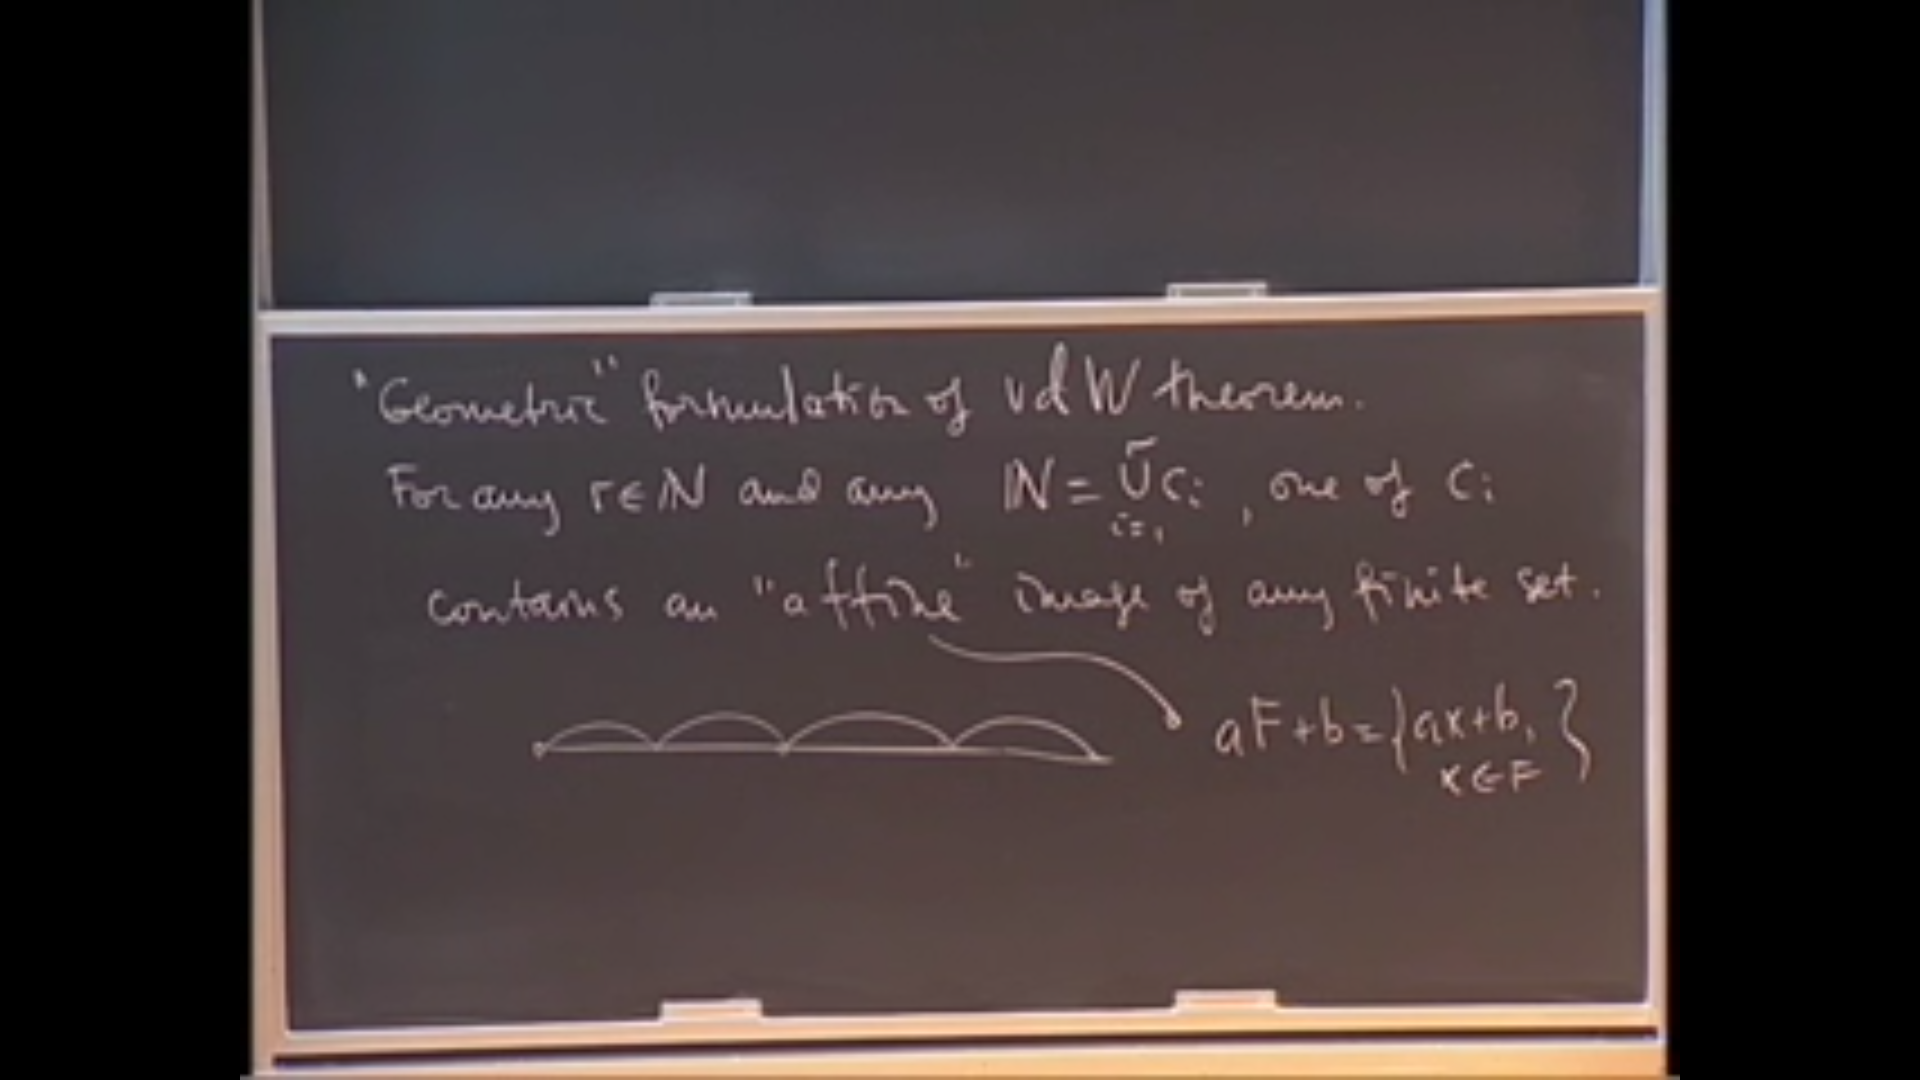 "Geometric" formulation of vdW theorem.
For any r∈ℕ and any ℕ = ⋃_{i=1}^{r} C_i, one of C_i
contains an "affine" image of any finite set.
aF+b = {ax+b, x∈F}